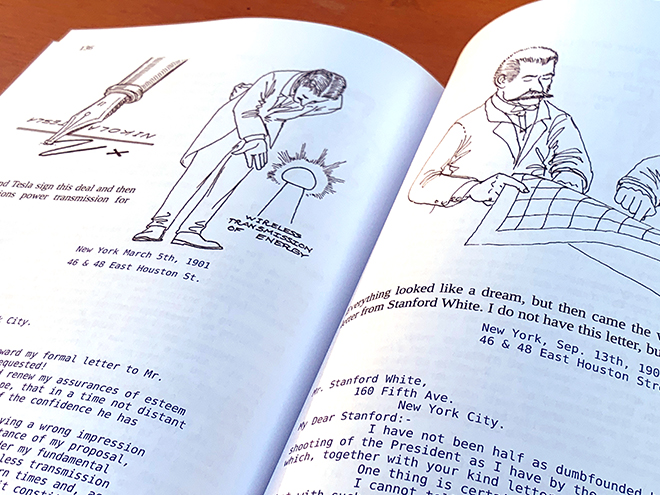 136
NIKOLA TESLA
x
nd Tesla sign this deal and then
ions power transmission for
WIRELESS
TRANSMISSION
OF ENERGY
New York March 5th, 1901
46 & 48 East Houston St.
City.
ward my formal letter to Mr.
equested!
f renew my assurances of esteem
pe, that in a time not distant
f the confidence he has
ying a wrong impression
tance of my proposal,
er my fundamental
less transmission
rn times and, as
it consti
Everything looked like a dream, but then came the
letter from Stanford White. I do not have this letter, bu
New York, Sep. 13th, 190
46 & 48 East Houston Stre
Mr. Stanford White,
160 Fifth Ave.
New York City.
My Dear Stanford:-
I have not been half as dumbfounded
shooting of the President as I have by the
which, together with your kind lett
One thing is certa
I cannot